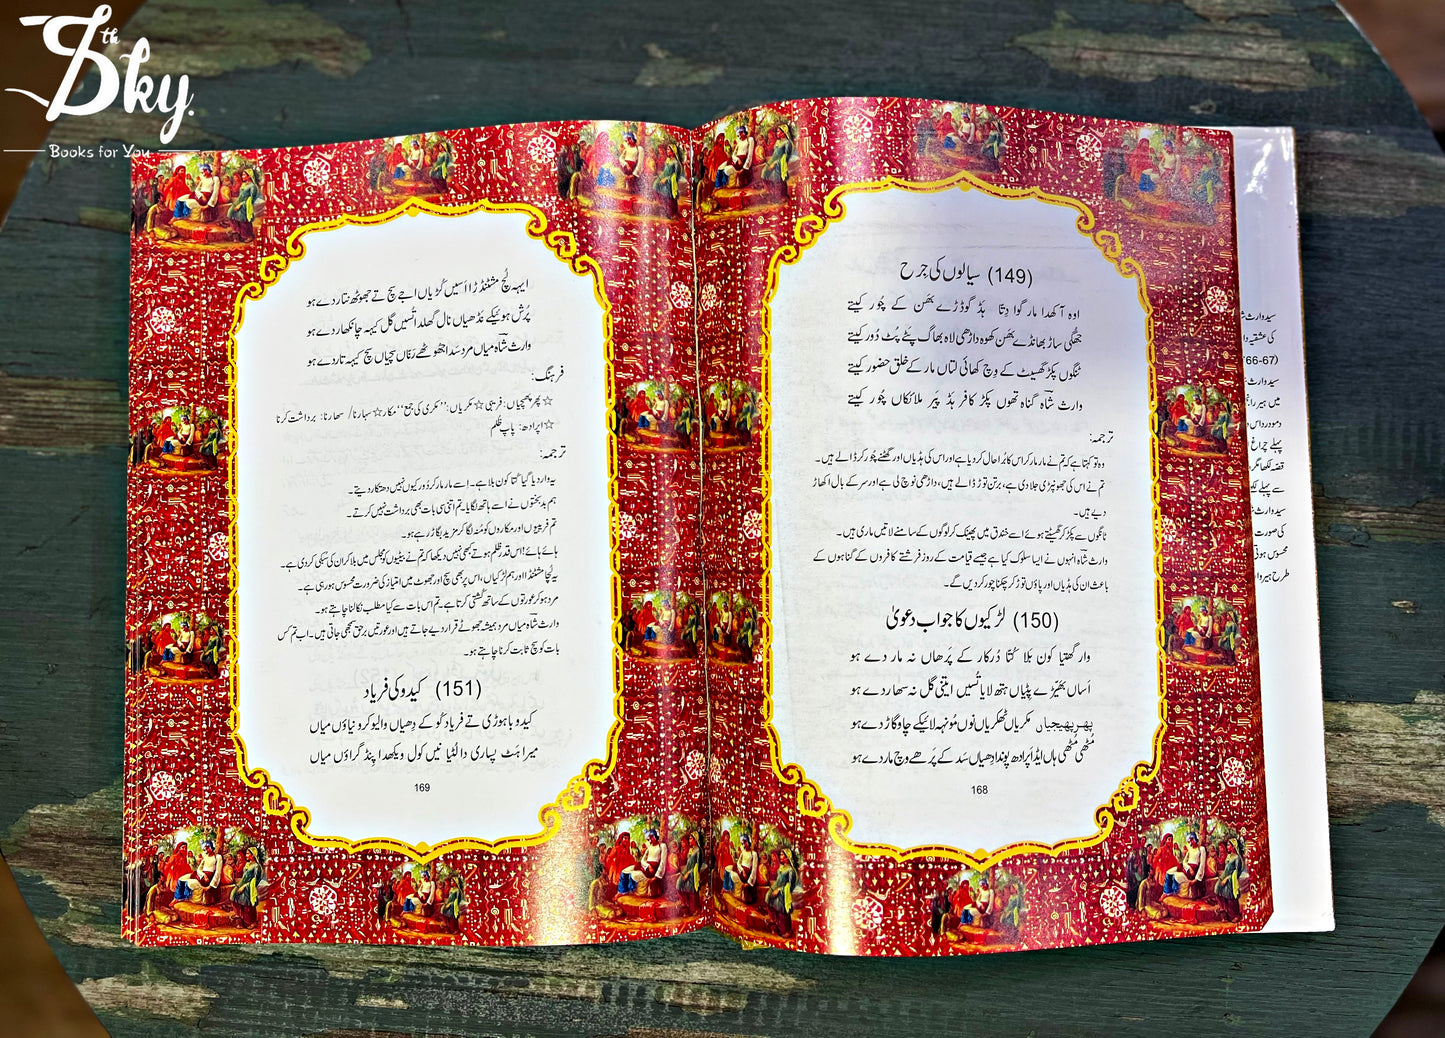 8th Sky.
Books for You
(149) سیالوں کی جِرح
اوہ آکھدا مار گوا دِتا ہڈ گوڈڑے بھَن کے چُور کیتے
جھُگی ساڑ بھانڈے بھَن کھوہ داڑھی لاہ بھاگ پَٹے پُٹ دُور کیتے
ٹنگوں پکڑ گھسیٹ کے وِچ کھائی لتاں مار کے خلق حضور کیتے
وارث شاہ گناہ تھوں پکڑ کافر ہڈ پَیر ملائکاں چُور کیتے
ترجمہ:
وہ تو کہتا ہے کہ تم نے مار مار کر اس کا بُرا حال کر دیا ہے اور اس کی ہڈیاں اور گھٹنے چُور کر ڈالے ہیں۔
تم نے اس کی جھونپڑی جلا دی ہے، برتن توڑ ڈالے ہیں، داڑھی نوچ لی ہے اور سر کے بال اکھاڑ
دیے ہیں۔
ٹانگوں سے پکڑ کر گھسیٹتے ہوئے اسے خندق میں پھینک کر لوگوں کے سامنے لاتیں ماری ہیں۔
وارث شاہ انہوں نے ایسا سلوک کیا ہے جیسے قیامت کے روز فرشتے کافروں کے گناہوں کے
باعث ان کی ہڈیاں اور پاؤں توڑ کر چکنا چور کر دیں گے۔
(150) لڑکیوں کا جواب دعویٰ
وار گھتیا کون بَلا کُتا دُرکار کے پرَھاں نہ مار دے ہو
اَساں بھَیڑے پِٹیاں ہتھ لایا تُسیں ایتنی گل نہ سہار دے ہو
پھرپھیجیاں مکریاں ٹھکریاں نوں مُونہہ لائیکے چا وگاڑ دے ہو
مُٹھی مُٹھی ہاں ایڈا پَرادھ پوندا دِھیاں سَد کے پَرھے وِچ مار دے ہو
168
ایہہ لُچ مشٹنڈڑا اسیں کُڑیاں اجے سچ تے جھوٹھ نتار دے ہو
پُرش ہوئیکے نڈھیاں نال گھُلدا تُسیں گل کیہہ چا نکھار دے ہو
وارث شاہ میاں مرد سَدا جھُوٹھے رنّاں سچیاں سچ کیہہ تار دے ہو
فرہنگ:
☆پھرپھیجیاں: فریبی☆مکریاں: "مکری کی جمع" مکار☆سہارنا/ سھارنا: برداشت کرنا
☆اپرادھ: پاپ ظُلم
ترجمہ:
یہ وارد یا گیا کُتا کون بلا ہے۔ اِسے مار مار کر دُور کیوں نہیں دھتکار دیتے۔
ہم بدبختوں نے اسے ہاتھ لگایا۔ تم اتنی سی بات بھی برداشت نہیں کرتے۔
تم فریبیوں اور مکاروں کو مُنہ لگا کر مزید بگاڑ رہے ہو۔
ہائے ہائے! اس قدر ظلم ہوتے کبھی نہیں دیکھا کہ تم نے بیٹیوں کو مجلس میں بلا کر ان کی سبکی کر دی ہے۔
یہ لُچا مشٹنڈا اور ہم لڑکیاں، اس پر بھی سچ اور جھوٹ میں امتیاز کی ضرورت محسوس ہو رہی ہے۔
مرد ہو کر عورتوں کے ساتھ کُشتی کرتا ہے۔ تم اس بات سے کیا مطلب نکالنا چاہتے ہو۔
وارث شاہ میاں مرد ہمیشہ جھوٹے قرار دیے جاتے ہیں اور عورتیں برحق سمجھی جاتی ہیں۔ اب تم کس
بات کو سچ ثابت کرنا چاہتے ہو۔
(151) کیدو کی فریاد
کیدو باہوڑی تے فریاد کُو کے دِھیاں والیو کرو نیاؤں میاں
میرا ہَٹ پساری دا لُٹیا نیں کول ویکھدا پِنڈ گراؤں میاں
169
سید وارث شا
کی عشقیہ دا
(66-67
سید وارث
میں ہیر رانجھ
دمودر داس د
پہلے چراغ ا
قصّہ لکھا مگر
سے پہلے لکھے
سید وارث ش
کی صورت
محسوس ہوتی
طرح ہیر وا